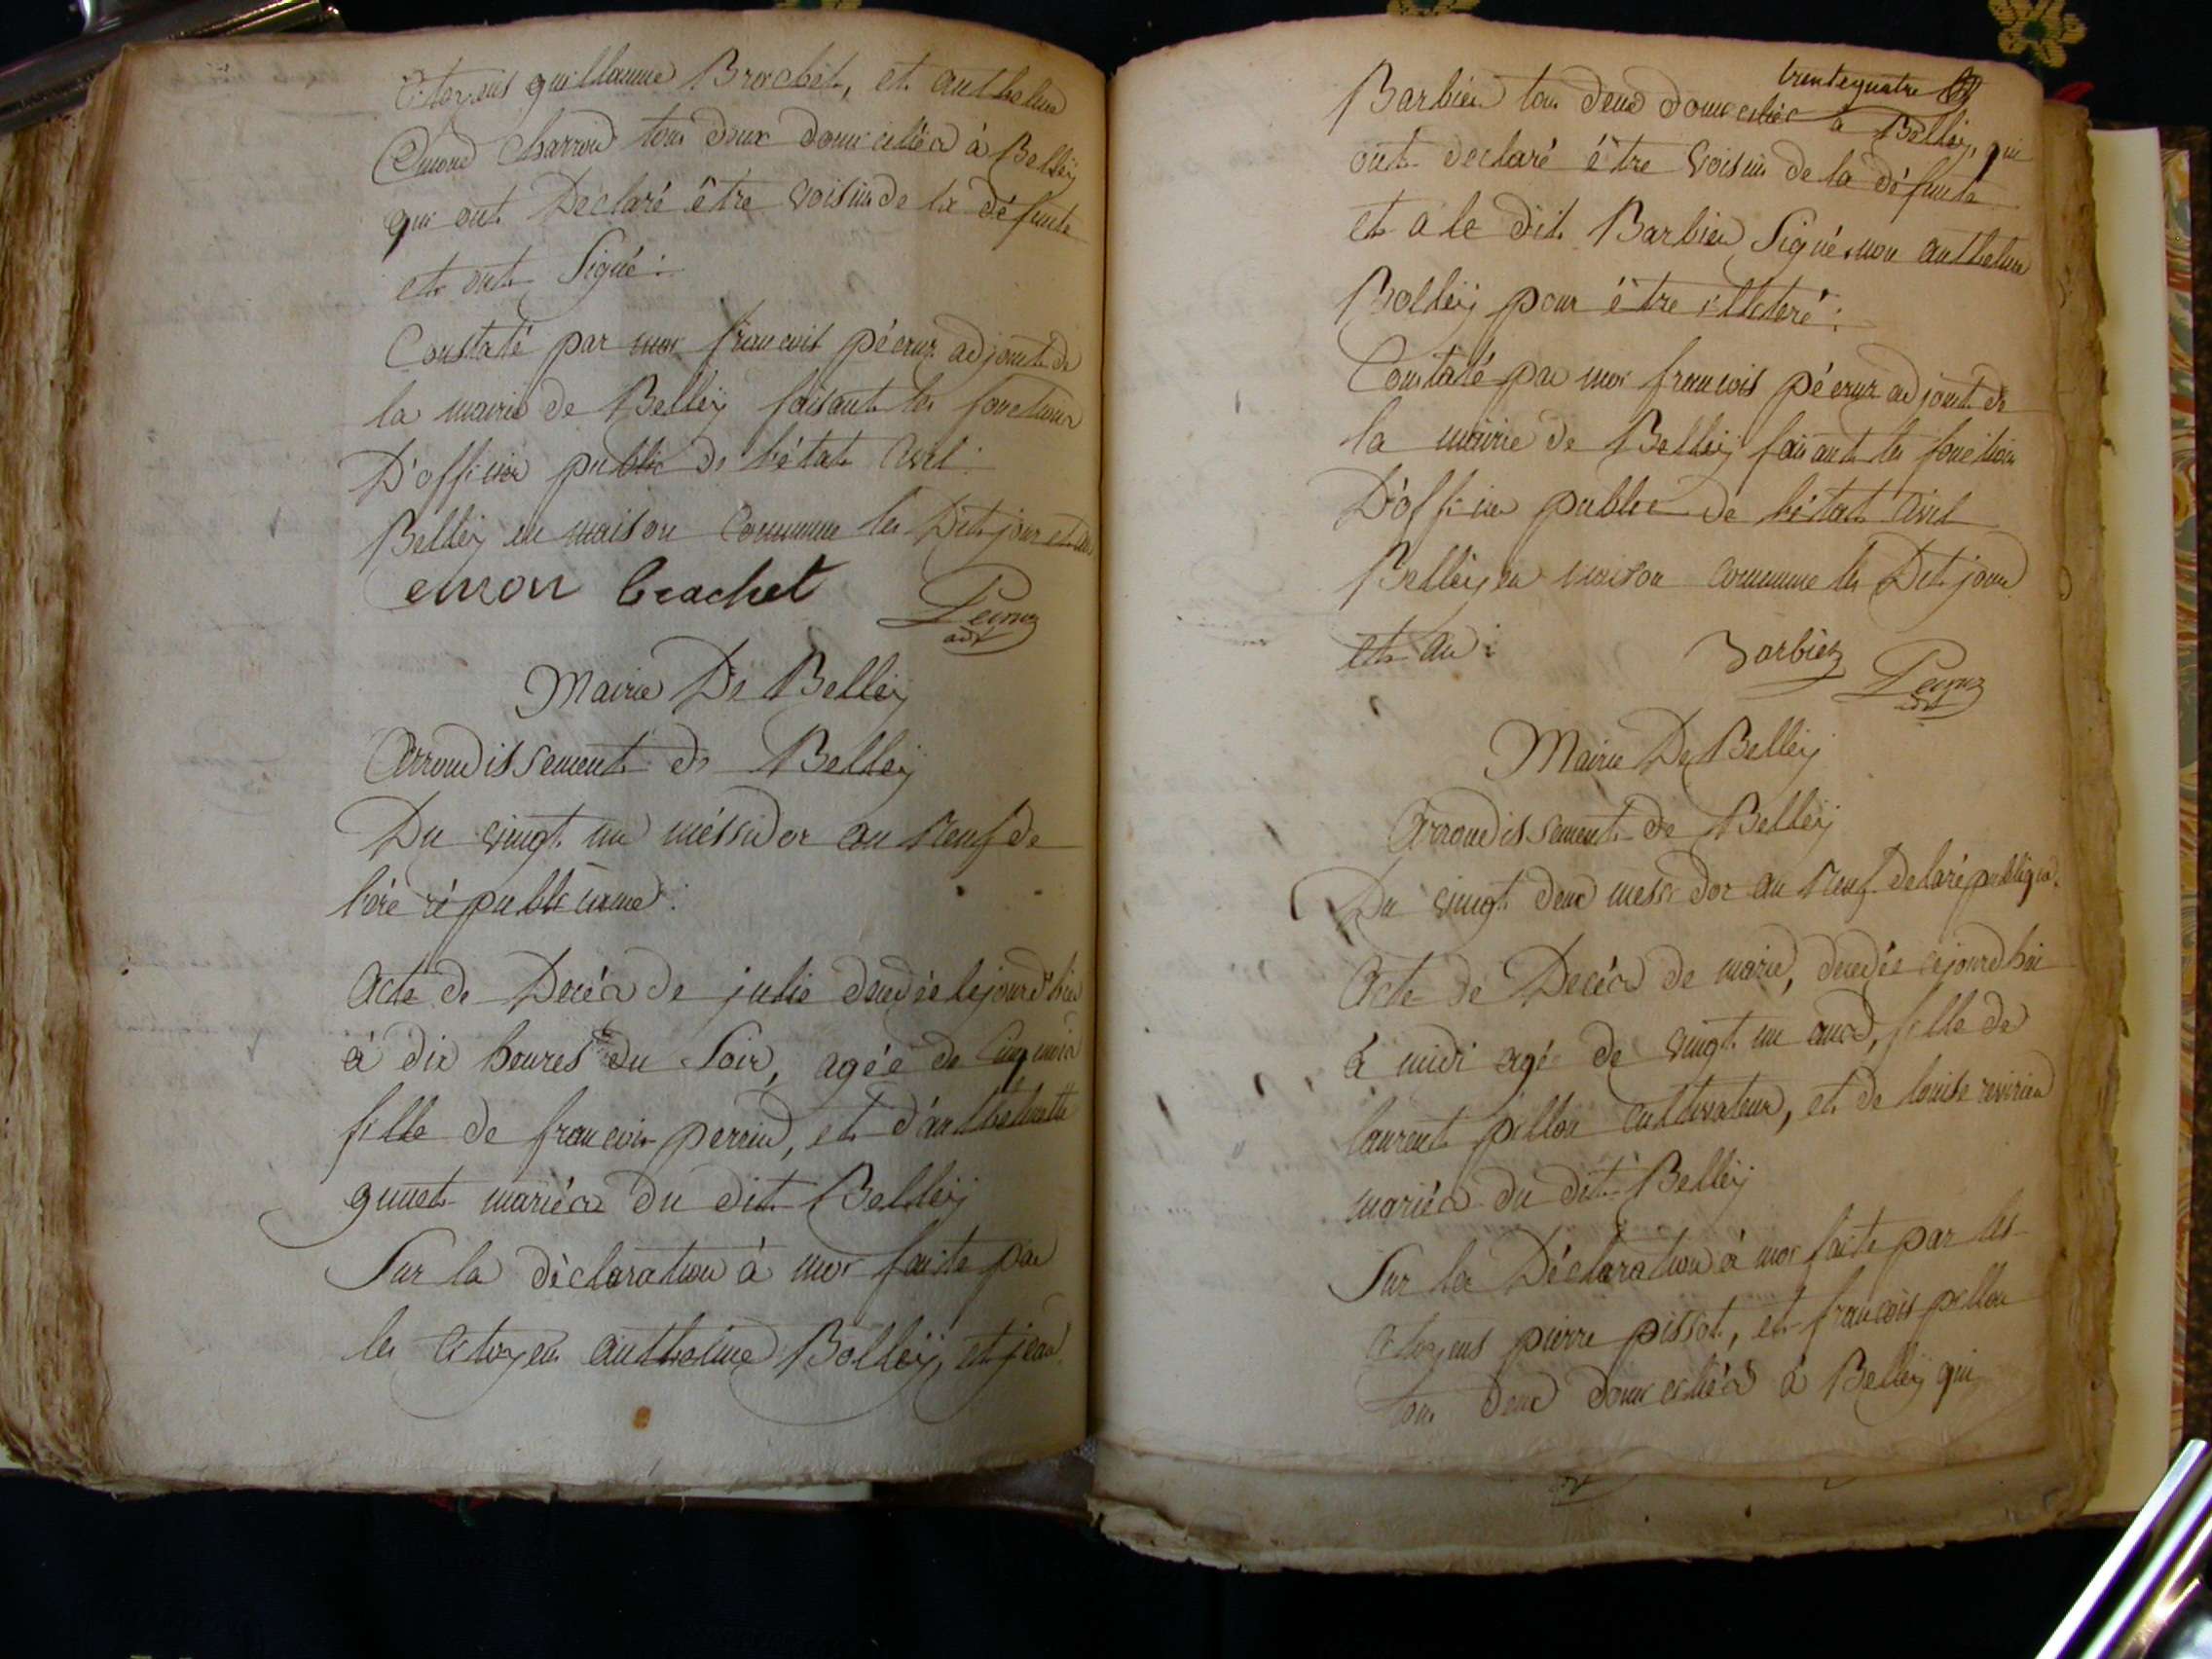 Citoyens guillaume Brochet, et anthelme
Emond Charron tous deux domiciliés à Belleÿ
qui ont Déclaré être voisin de la défunte
et ont Signé :
Constaté par moi francois pécruz adjoint de
la mairie de Belleÿ faisant les fonctions
D'officier public de l'état civil :
Belleÿ en maison Commune les Dit jour et an
emon brachet
adt
Mairie De Belleÿ
Arrondissement de Belleÿ
Du vingt un méssidor an neuf de
l'ére républicaine :
Acte de Decés de julie decedée cejourd'hui
à dix heures du Soir, agée de Cinq mois
fille de francois perrin, et d'anthelmette
gunet mariés du dit Belleÿ
Sur la déclaration à moi faite par
les Citoyens anthelme Bolleÿ, et jean
trentequatre
Barbier tous deux domiciliés à Belleÿ, qui
ont declaré être voisin de la défunte
et a le dit Barbier Signé, non anthelme
Bolleÿ pour être illeteré :
Constaté par moi francois pécruz adjoint de
la mairie de Belleÿ faisant les fonction
D'officier public de l'état civil
Belleÿ en maison commune les Dit jour
et an : Barbier
adt
Mairie De Belleÿ
Arrondissement de Belleÿ
Du vingt deux messidor an neuf de la république.
Acte de Decés de marie, decedée cejourdhui
à midi agé de vingt un ans, fille de
laurent pellon cultivateur, et de louise
mariés du dit Belleÿ
Sur la Déclaration à moi faite par les
Citoyens pierre pissot, et francois pellon
tous deux domiciliés à Belleÿ qui